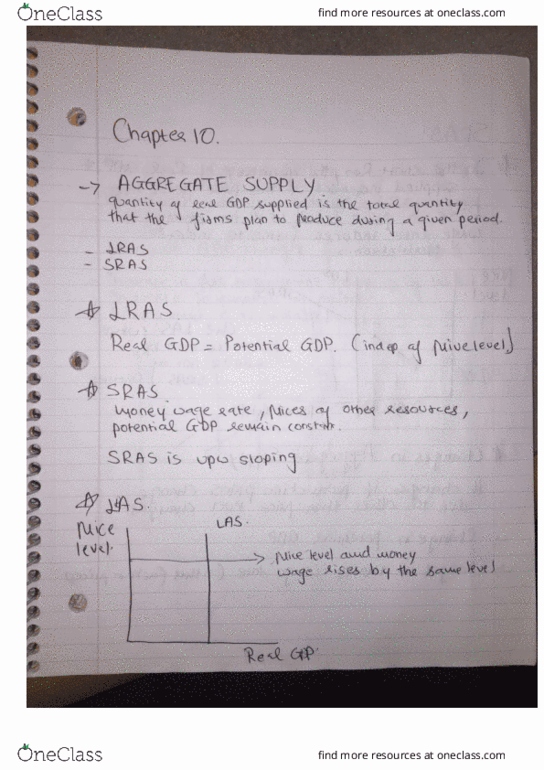 OneClass
find more resources at oneclass.com
Chapter 10.
-> AGGREGATE SUPPLY
quantity of real GDP supplied is the total quantity
that the firms plan to produce during a given period.
- LRAS
- SRAS
LRAS.
Real GDP = Potential GDP. (indep of price level)
SRAS.
Money wage rate, prices of other resources,
potential GDP remain constant.
SRAS is upw sloping
LAS.
Price
level.
LAS.
Price level and money
wage rises by the same level
Real GDP.
OneClass
find more resources at oneclass.com